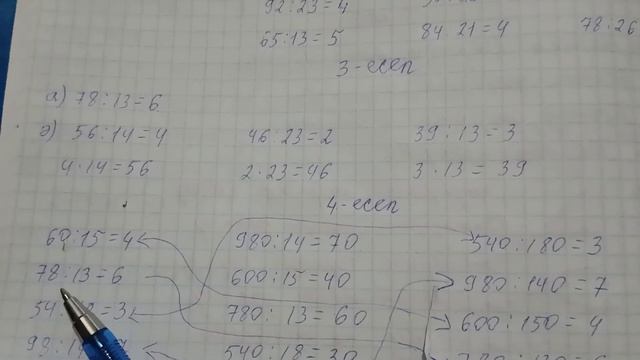 92:23=4
65:13=5 84 21=4 78:26
3-есеп
а) 78:13=6
ә) 56:14=4 46:23=2 39:13=3
4·14=56 2·23=46 3·13=39
4-есеп
60:15=4 980:14=70 540:180=3
78:13=6 600:15=40 980:140=7
=3 780:13=60 600:150=4
540:18=30